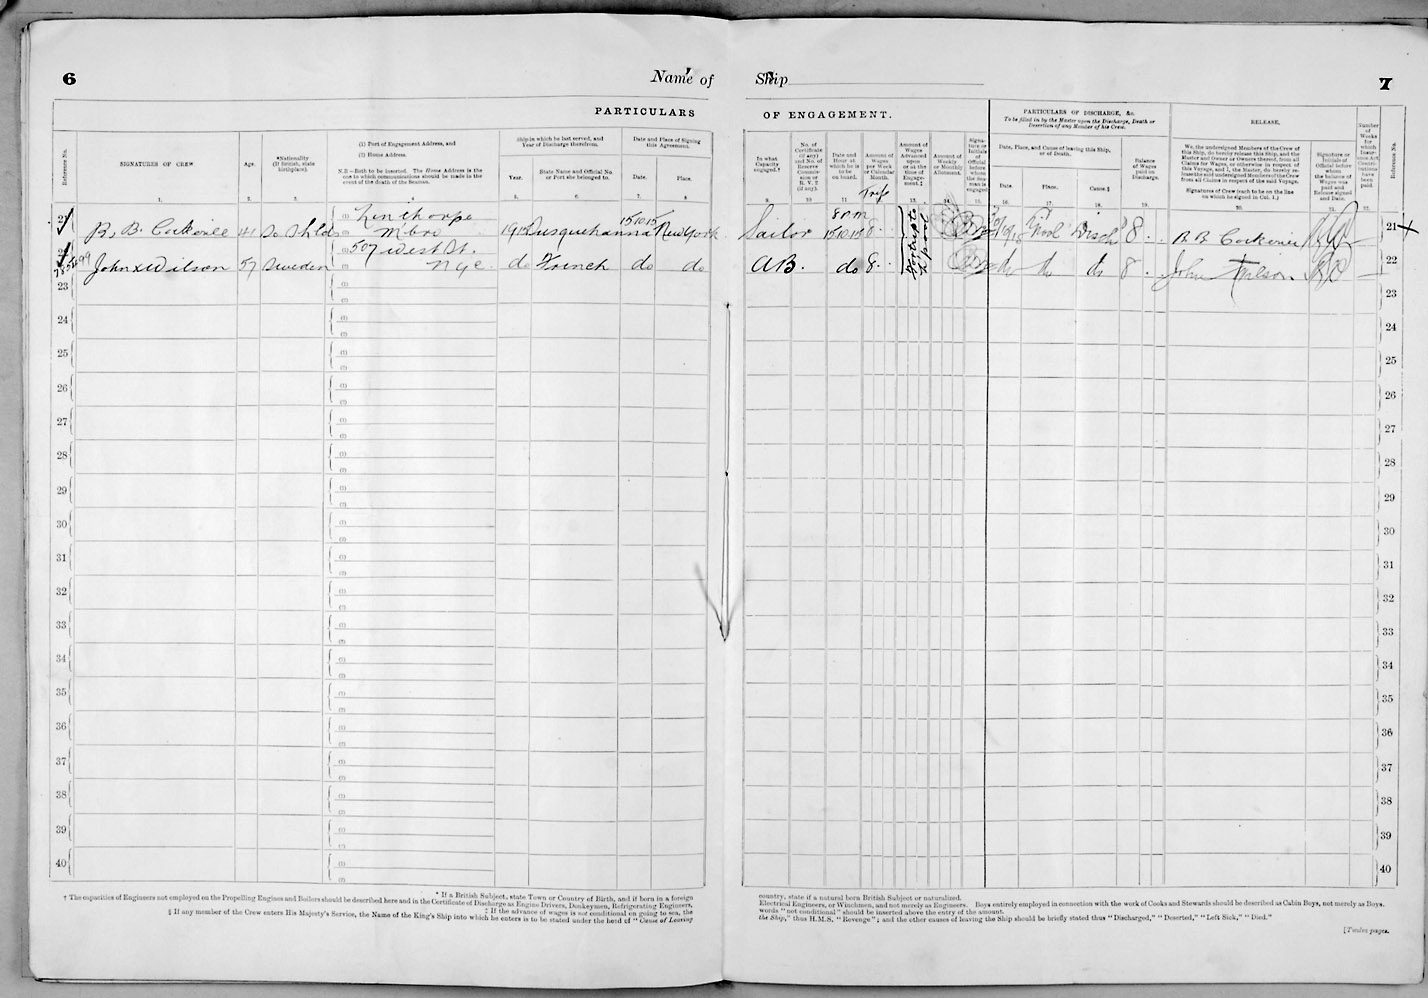 6
Name of
Ship
7
PARTICULARS
OF ENGAGEMENT.
PARTICULARS OF DISCHARGE, &c.
To be filled in by the Master upon the Discharge, Death or
Desertion of any Member of his Crew.
RELEASE,
Reference No.
SIGNATURES OF CREW.
Age.
*Nationality
(If British, state
birthplace).
(1) Port of Engagement Address, and
(2) Home Address.
N.B.—Both to be inserted. The Home Address is the
one to which communications should be made in the
event of the death of the Seaman.
Ship in which he last served, and
Year of Discharge therefrom.
Year.
State Name and Official No.
or Port she belonged to.
Date and Place of Signing
this Agreement.
Date.
Place.
In what
Capacity
engaged.†
No. of
Certificate
(if any)
and No. of
Reserve
Commis-
sion or
R. V. 2
(if any).
Date and
Hour at
which he is
to be
on board.
Amount of
Wages
per Week
or Calendar
Month.
Trip
Amount of
Wages
Advanced
upon
or at the
time of
Engage-
ment.‡
Amount of
Weekly
or Monthly
Allotment.
Signa-
ture or
Initials
of
Official
before
whom
the Sea-
man is
engaged
Date, Place, and Cause of leaving this Ship,
or of Death.
Date.
Place.
Cause.§
Balance
of Wages
paid on
Discharge.
We, the undersigned Members of the Crew of
this Ship, do hereby release this Ship, and the
Master and Owner or Owners thereof, from all
Claims for Wages, or otherwise in respect of
this Voyage, and I, the Master, do hereby re-
lease the said undersigned Members of the Crew
from all Claims in respect of the said Voyage.
Signatures of Crew (each to be on the line
on which he signed in Col. 1.)
Signature or
Initials of
Official before
whom
the balance of
Wages was
paid and
Release signed
and Date.
Number
of
Weeks
for
which
Insur-
ance Act
Contri-
butions
have
been
paid.
Reference No.
1. 2. 3. 5. 6. 7. 8. 9. 10 11 12. 13. 14. 15. 16. 17. 18. 19. 20. 21. 22.
21 (1) Linthorpe 15.10.15 8 P.M
B. B. Cockerill 41 So Shlds (2) Mbro 1915 Susquehanna New York Sailor 15.10.15 8 L'pool Disch 8 21
22 (1) 507 West St.
John x Wilson 57 Sweden (2) Nyc do French do do AB. do 8 do do 8 John Wilson 22
23 23
24 24
25 25
26 26
27 27
28 28
29 29
30 30
31 31
32 32
33 33
34 34
35 35
36 36
37 37
38 38
39 39
40 40
* If a British Subject, state Town or Country of Birth, and if born in a foreign
country, state if a natural born British Subject or naturalized.
† The capacities of Engineers not employed on the Propelling Engines and Boilers should be described here and in the Certificate of Discharge as Engine Drivers, Donkeymen, Refrigerating Engineers,
Electrical Engineers, or Winchmen, and not merely as Engineers. Boys entirely employed in connection with the work of Cooks and Stewards should be described as Cabin Boys, not merely as Boys.
‡ If the advance of wages is not conditional on going to sea, the
words "not conditional" should be inserted above the entry of the amount.
§ If any member of the Crew enters His Majesty's Service, the Name of the King's Ship into which he enters is to be stated under the head of "Cause of Leaving
the Ship," thus H.M.S. "Revenge"; and the other causes of leaving the Ship should be briefly stated thus "Discharged," "Deserted," "Left Sick," "Died."
[Twelve pages.